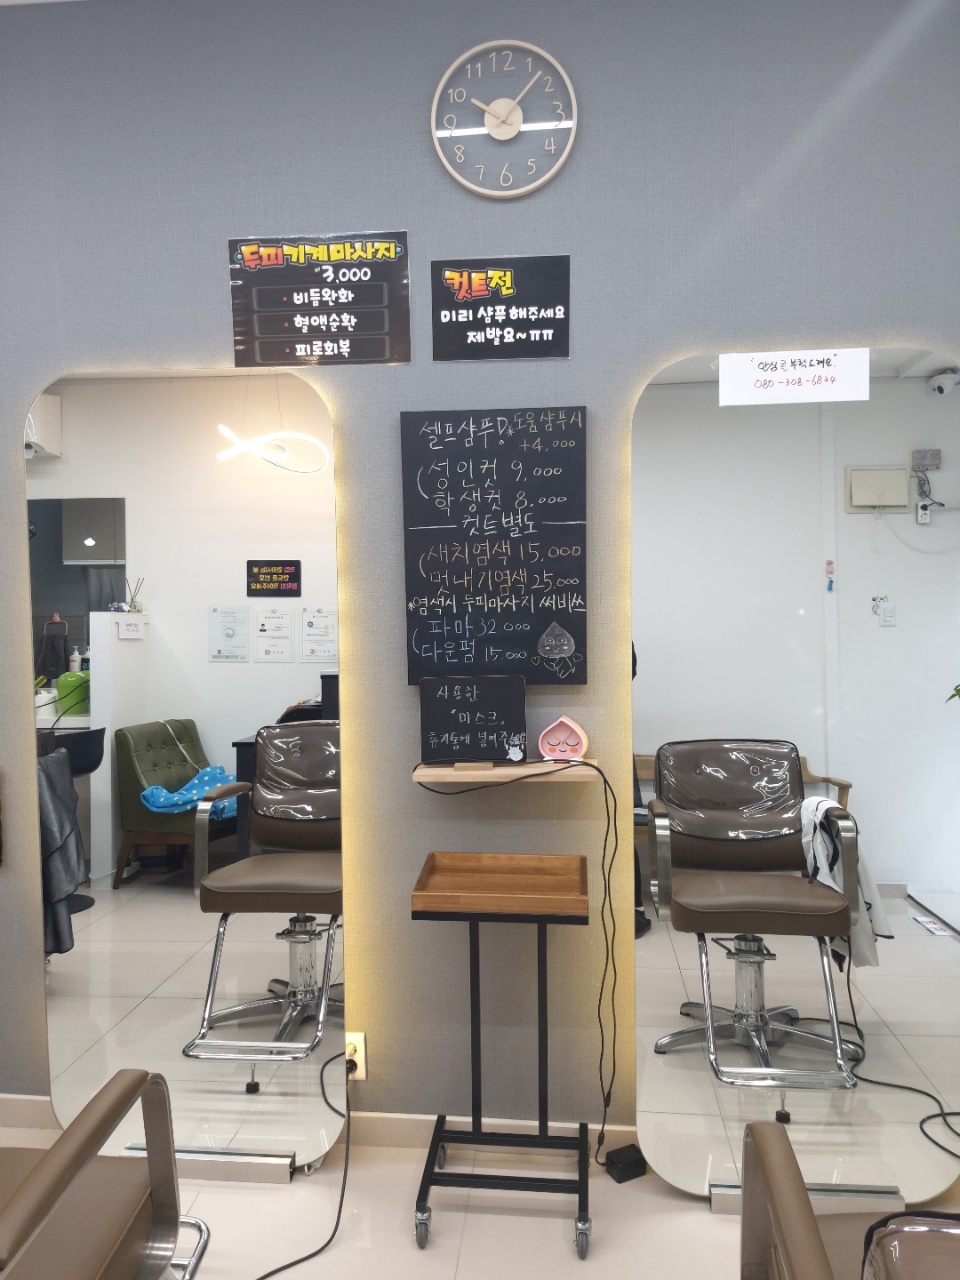 12
1
2
3
4
5
6
7
8
9
10
11
두피기계마사지
₩3,000
비듬완화
혈액순환
피로회복
컷트전
미리 샴푸해주세요
제발요~ㅠㅠ
"안심콜 부탁드려요"
080-308-6834
셀프샴푸 *도움샴푸시
+4,000
성인컷 9,000
학생컷 8,000
컷트별도
새치염색 15,000
멋내기염색 25,000
*염색시 두피마사지 써비쓰
파마 32000
다운펌 15,000
사용한
"마스크"
휴지통에 넣어주세요